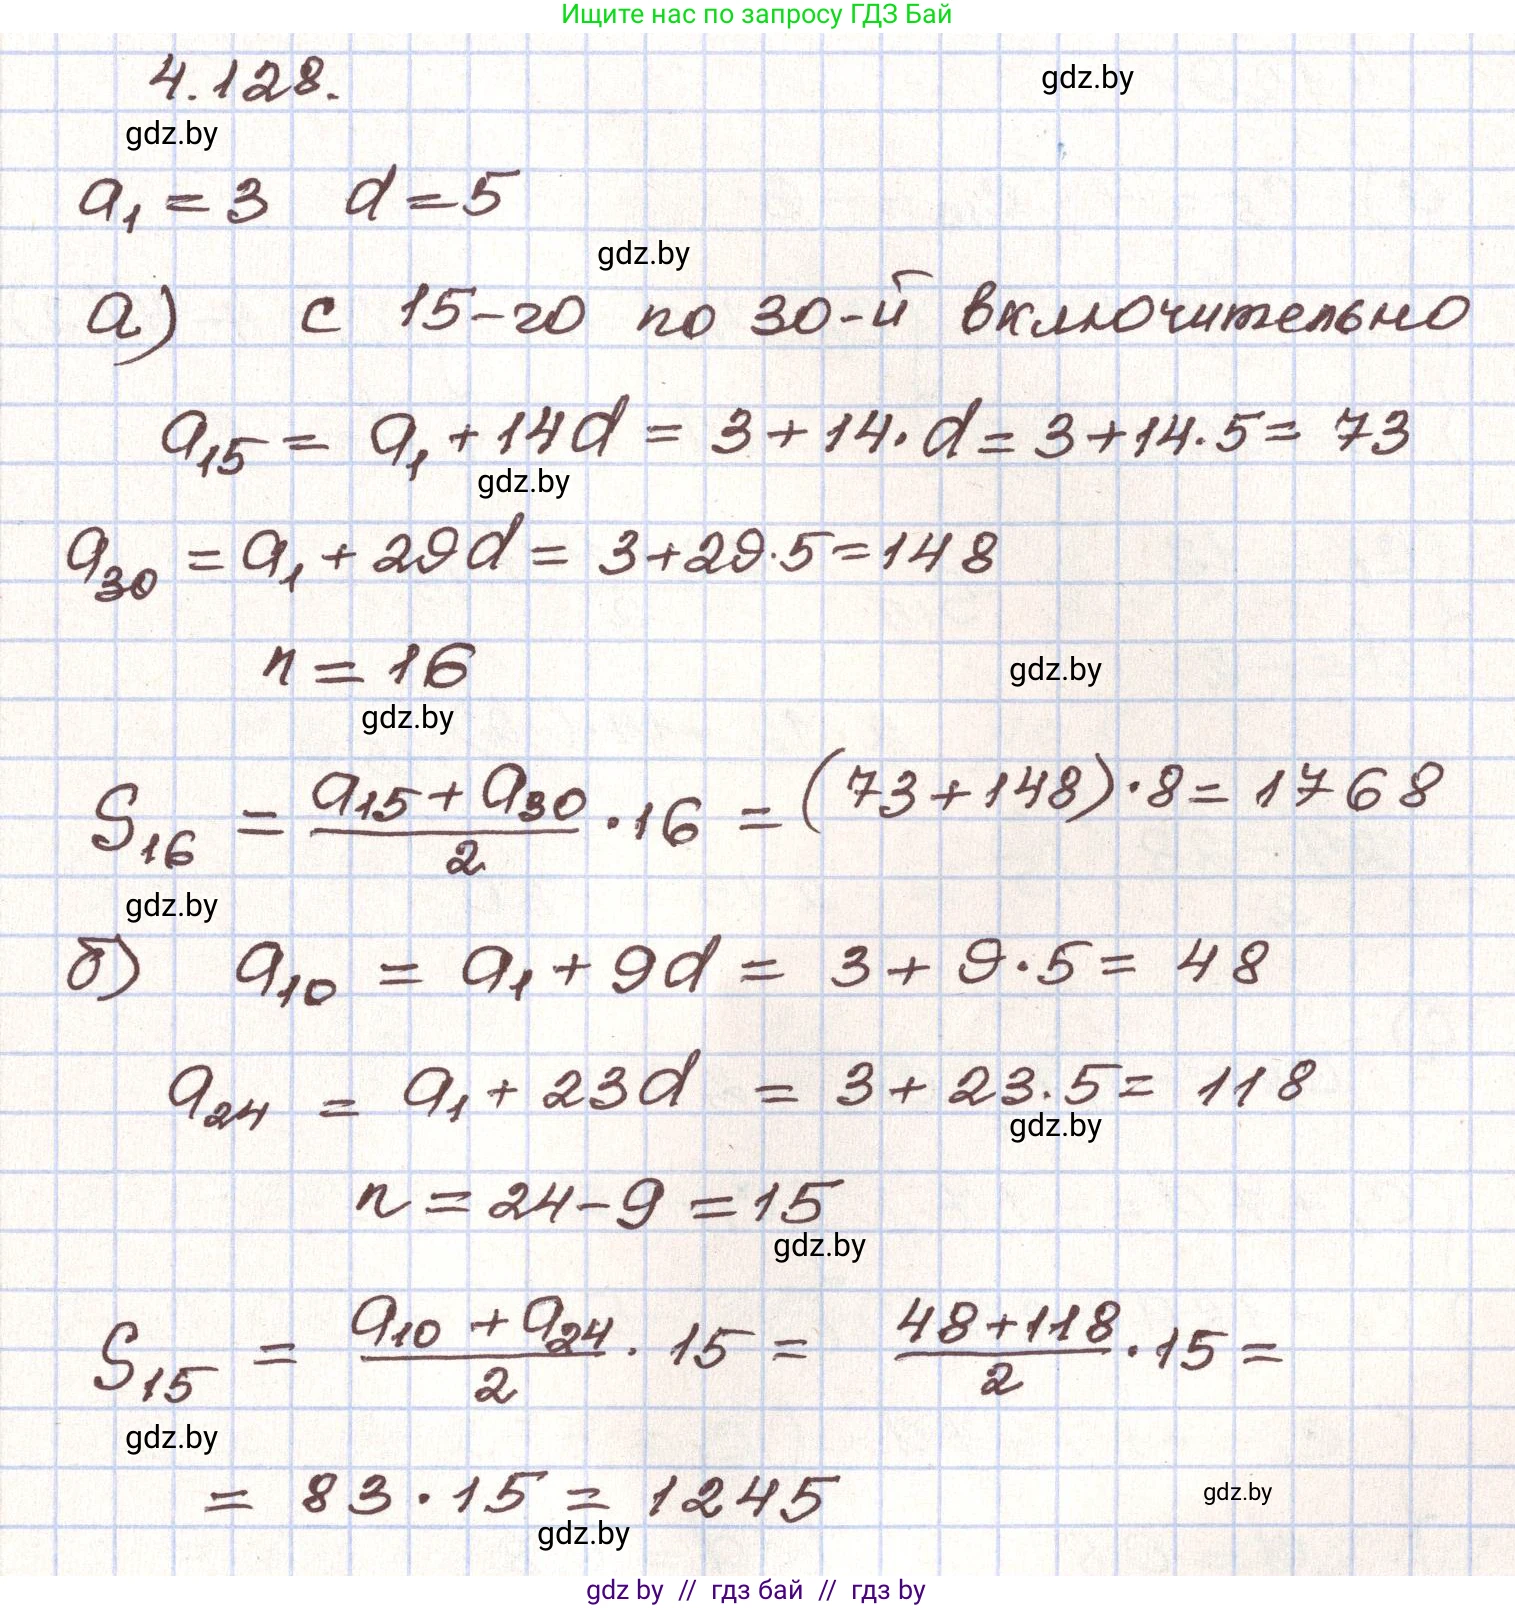 Ищите нас по запросу ГДЗ Бай
4.128.
gdz.by
gdz.by
a₁ = 3 d = 5
gdz.by
а) с 15-го по 30-й включительно
a₁₅ = a₁ + 14d = 3 + 14 · d = 3 + 14 · 5 = 73
gdz.by
a₃₀ = a₁ + 29d = 3 + 29 · 5 = 148
n = 16
gdz.by
gdz.by
S₁₆ = (a₁₅ + a₃₀)/2 · 16 = (73 + 148) · 8 = 1768
gdz.by
б) a₁₀ = a₁ + 9d = 3 + 9 · 5 = 48
a₂₄ = a₁ + 23d = 3 + 23 · 5 = 118
gdz.by
n = 24 - 9 = 15
gdz.by
S₁₅ = (a₁₀ + a₂₄)/2 · 15 = (48 + 118)/2 · 15 =
gdz.by
= 83 · 15 = 1245
gdz.by
gdz.by
gdz by // гдз бай // гдз by